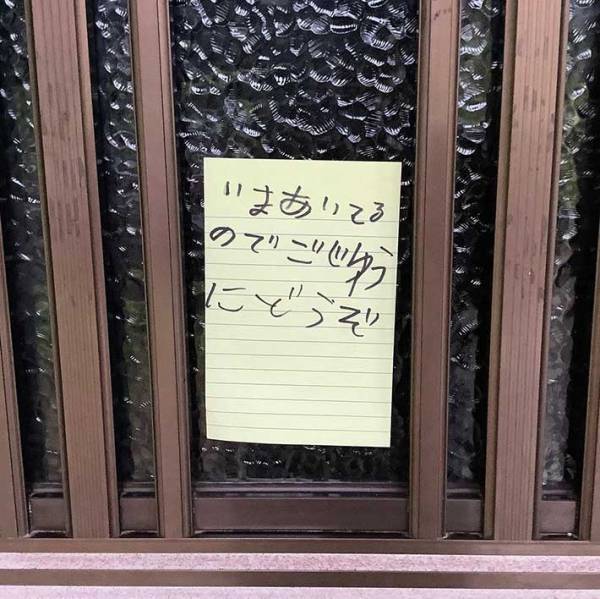 いまあいてる
のでごじゆう
にどうぞ